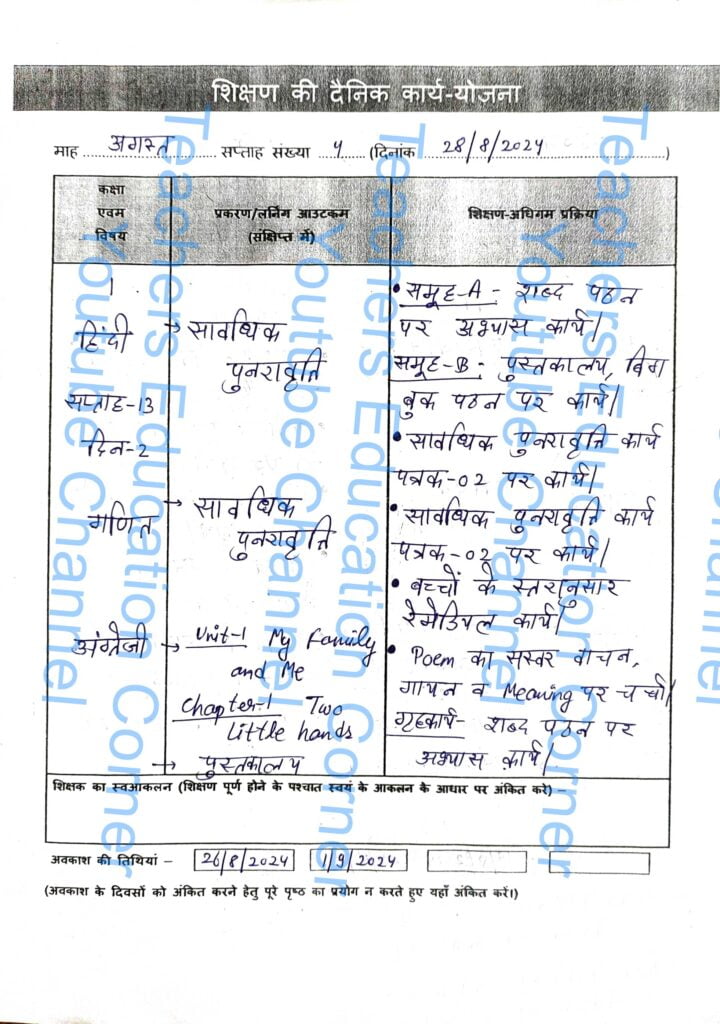 शिक्षण की दैनिक कार्य-योजना
माह अगस्त सप्ताह संख्या 4 (दिनांक 28/8/2024)
कक्षा एवम विषय
प्रकरण/लर्निंग आउटकम (संक्षिप्त में)
शिक्षण-अधिगम प्रक्रिया
1
हिंदी
सप्ताह-13
दिन-2
→ सावधिक
पुनरावृत्ति
• समूह-A - शब्द पठन
पर अभ्यास कार्य।
समूह-B - पुस्तकालय, बिग
बुक पठन पर कार्य।
• सावधिक पुनरावृत्ति कार्य
पत्रक-02 पर कार्य।
गणित
→ सावधिक
पुनरावृत्ति
• सावधिक पुनरावृत्ति कार्य
पत्रक-02 पर कार्य।
• बच्चों के स्तरानुसार
रेमेडियल कार्य।
अंग्रेजी
→ Unit-1 My Family
and Me
Chapter-1 Two
Little hands
→ पुस्तकालय
• Poem का सस्वर वाचन,
गायन व Meaning पर चर्चा।
गृहकार्य- शब्द पठन पर
अभ्यास कार्य।
शिक्षक का स्वआकलन (शिक्षण पूर्ण होने के पश्चात स्वयं के आकलन के आधार पर अंकित करे) –
अवकाश की तिथियां – 26/8/2024 1/9/2024
(अवकाश के दिवसों को अंकित करने हेतु पूरे पृष्ठ का प्रयोग न करते हुए यहाँ अंकित करें।)
Teachers Education Corner
Youtube Channel
Teachers Education Corner
Youtube Channel
Teachers Education Corner
Youtube Channel